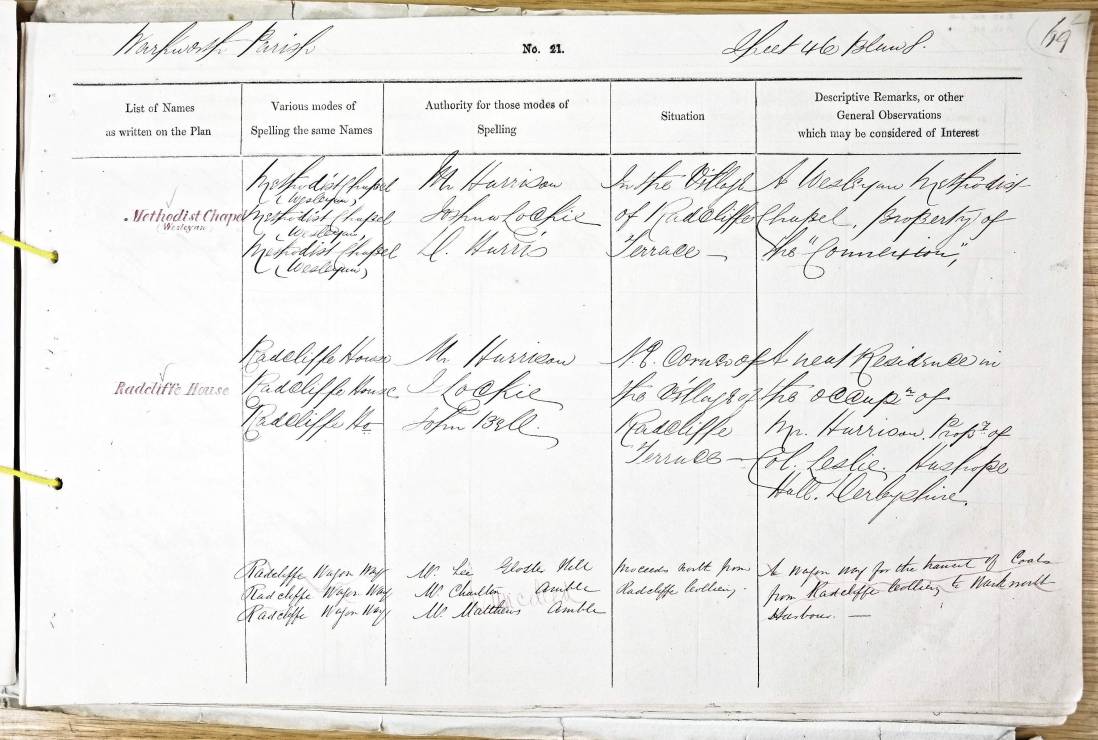 Warkworth Parish No. 21. Sheet 46 69
List of Names
as written on the Plan
Various modes of
Spelling the same Names
Authority for those modes of
Spelling
Situation
Descriptive Remarks, or other
General Observations
which may be considered of Interest
Methodist Chapel
(Wesleyan)
Methodist Chapel
(Wesleyan)
Methodist Chapel
(Wesleyan)
Methodist Chapel
(Wesleyan)
Mr Harrison
Joshua Lockie
D. Harris
In the Village
of Radcliffe
Terrace —
A Wesleyan Methodist
Chapel, property of
the "Connexion",
Radcliffe House
Radcliffe House
Radcliffe House
Radcliffe Ho
Mr Harrison
J Lockie
John Bell.
N.E. Corner of
the Village of
Radcliffe
Terrace —
A neat Residence in
the occupn of
Mr. Harrison. Propy of
Col. Leslie. Hashope
Hall. Derbyshire.
Radcliffe Wagon Way
Radcliffe Wagon Way
Radcliffe Wagon Way
Mr Lee Gloster Hill
Mr Charlton Amble
Mr Matthews Amble
Proceeds north from
Radcliffe Colliery.
A wagon way for the transit of Coals
from Radcliffe Colliery to Warkworth
Harbour. —